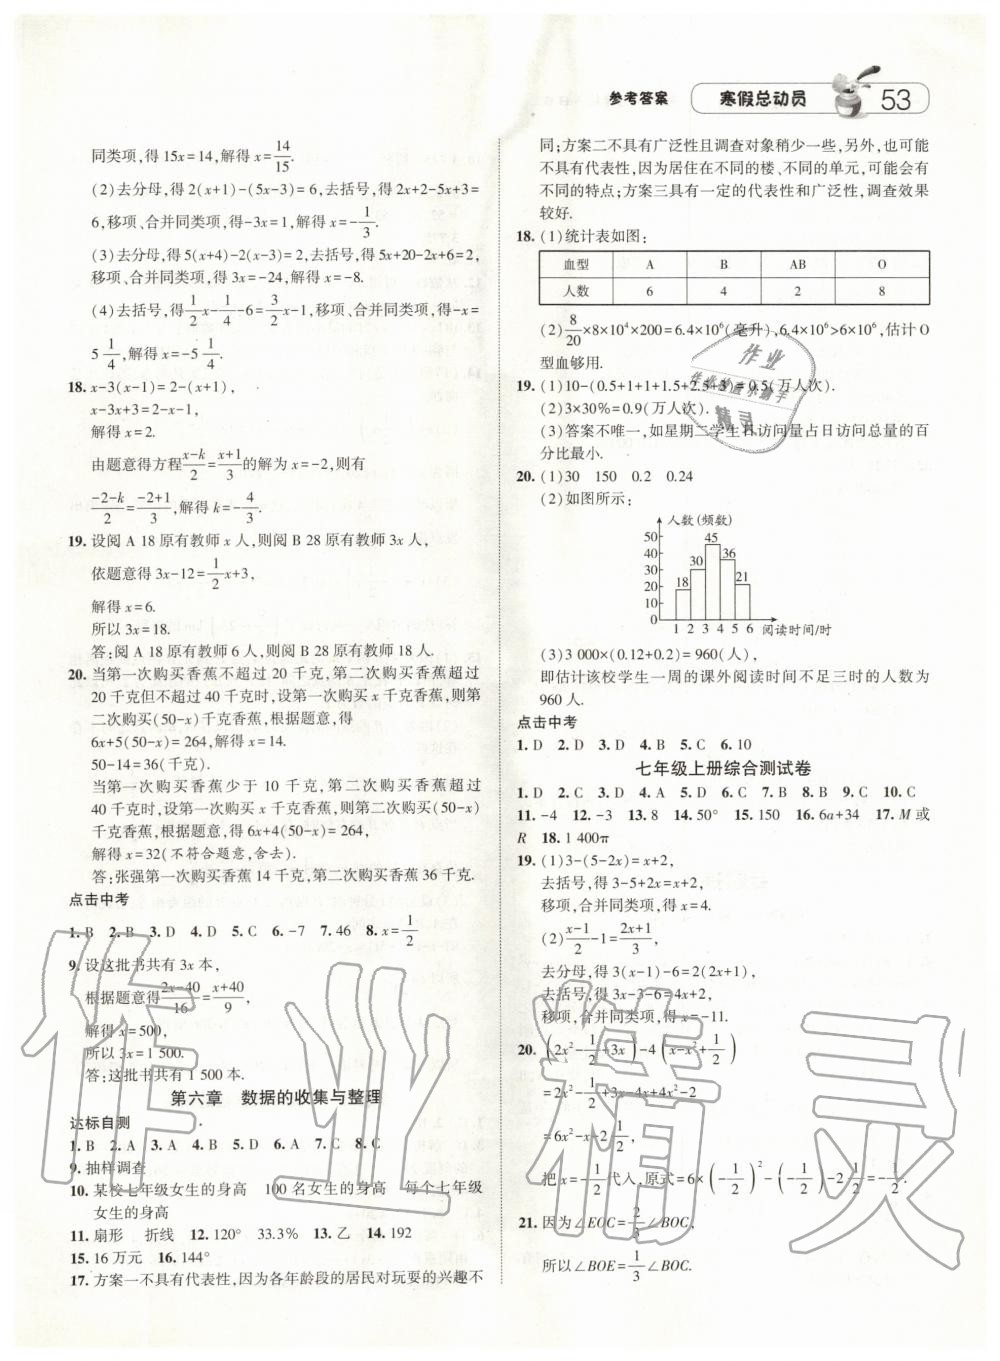 参考答案 寒假总动员 53
同类项,得 15x=14,解得 x=14/15.
(2)去分母,得 2(x+1)-(5x-3)=6,去括号,得 2x+2-5x+3=
6,移项、合并同类项,得-3x=1,解得 x=-1/3.
(3)去分母,得 5(x+4)-2(x-3)=2,去括号,得 5x+20-2x+6=2,
移项、合并同类项,得 3x=-24,解得 x=-8.
(4)去括号,得1/2x-1/4-6=3/2x-1,移项、合并同类项,得-x=
5 1/4,解得 x=-5 1/4.
18. x-3(x-1)=2-(x+1),
x-3x+3=2-x-1,
解得 x=2.
由题意得方程(x-k)/2=(x+1)/3的解为 x=-2,则有
(-2-k)/2=(-2+1)/3,解得 k=-4/3.
19. 设阅 A 18 原有教师 x 人,则阅 B 28 原有教师 3x 人,
依题意得 3x-12=1/2x+3,
解得 x=6.
所以 3x=18.
答:阅 A 18 原有教师 6 人,则阅 B 28 原有教师 18 人.
20. 当第一次购买香蕉不超过 20 千克,第二次购买香蕉超过
20 千克但不超过 40 千克时,设第一次购买 x 千克香蕉,则第
二次购买(50-x)千克香蕉,根据题意,得
6x+5(50-x)=264,解得 x=14.
50-14=36(千克).
当第一次购买香蕉少于 10 千克,第二次购买香蕉超过
40 千克时,设第一次购买 x 千克香蕉,则第二次购买(50-x)
千克香蕉,根据题意,得 6x+4(50-x)=264,
解得 x=32(不符合题意,舍去).
答:张强第一次购买香蕉 14 千克,第二次购买香蕉 36 千克.
点击中考
1. B 2. B 3. D 4. D 5. C 6. -7 7. 46 8. x=1/2
9. 设这批书共有 3x 本,
根据题意得(2x-40)/16=(x+40)/9,
解得 x=500,
所以 3x=1 500.
答:这批书共有 1 500 本.
第六章 数据的收集与整理
达标自测
1. B 2. A 3. A 4. B 5. D 6. A 7. C 8. C
9. 抽样调查
10. 某校七年级女生的身高 100 名女生的身高 每个七年级
女生的身高
11. 扇形 折线 12. 120° 33.3% 13. 乙 14. 192
15. 16 万元 16. 144°
17. 方案一不具有代表性,因为各年龄段的居民对玩耍的兴趣不
同;方案二不具有广泛性且调查对象稍少一些,另外,可能
不具有代表性,因为居住在不同的楼、不同的单元,可能会有
不同的特点;方案三具有一定的代表性和广泛性,调查效果
较好.
18. (1)统计表如图:
血型 A B AB O
人数 6 4 2 8
(2)8/20×8×10⁴×200=6.4×10⁶(毫升),6.4×10⁶>6×10⁶,估计 O
型血够用.
19. (1)10-(0.5+1+1+1.5+2.5+3)=0.5(万人次).
(2)3×30%=0.9(万人次).
(3)答案不唯一,如星期二学生日访问量占日访问总量的百
分比最小.
20. (1)30 150 0.2 0.24
(2)如图所示:
人数(频数)
50
40
30
20
10
18 30 45 36 21
1 2 3 4 5 6 阅读时间/时
(3)3 000×(0.12+0.2)=960(人),
即估计该校学生一周的课外阅读时间不足三时的人数为
960 人.
点击中考
1. D 2. D 3. D 4. B 5. C 6. 10
七年级上册综合测试卷
1. D 2. C 3. D 4. A 5. D 6. C 7. B 8. B 9. C 10. C
11. -4 12. -3 13. 8 14. 50° 15. 150 16. 6a+34 17. M 或
R 18. 1 400π
19. (1)3-(5-2x)=x+2,
去括号,得 3-5+2x=x+2,
移项,合并同类项,得 x=4.
(2)(x-1)/2-1=(2x+1)/3,
去分母,得 3(x-1)-6=2(2x+1),
去括号,得 3x-3-6=4x+2,
移项,合并同类项,得 x=-11.
20. (2x²-1/2+3x)-4(x-x²+1/2)
=2x²-1/2+3x-4x+4x²-2
=6x²-x-2 1/2,
把 x=-1/2代入,原式=6×(-1/2)²-(-1/2)-2 1/2=-1/2.
21. 因为∠EOC=2/3∠BOC,
所以∠BOE=1/3∠BOC.
作业
作业检查小精手
精灵
作业精灵